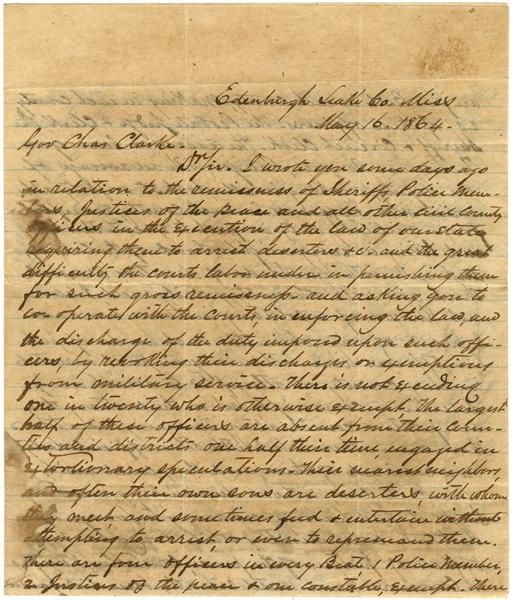 Edenburgh Leake Co. Miss
May 16. 1864.
Gov Chas Clarke.
Dr Sir. I wrote you some days ago
in relation to the remissness of Sheriffs Police Mem-
bers, Justices of the Peace and all other civil County
officers in the execution of the law of our State
requiring them to arrest deserters &c. and the great
difficulty the courts labor under in punishing them
for such gross remissness. and asking you to
co-operate with the Courts, in enforcing the law, and
the discharge of the duty imposed upon such offi-
cers, by revoking their discharges or exemptions
from military service. There is not exceeding
one in twenty who is otherwise exempt, the largest
half of these officers are absent from their Coun-
ties and districts one half their time, engaged in
extortionary speculations. Their nearest neighbors,
and often their own sons are deserters, with whom
they meet and sometimes feed & entertain without
attempting to arrest, or even to reprimand them.
There are four officers in every Beat, 1 Police Member,
2 Justices of the peace & one constable, exempt. There